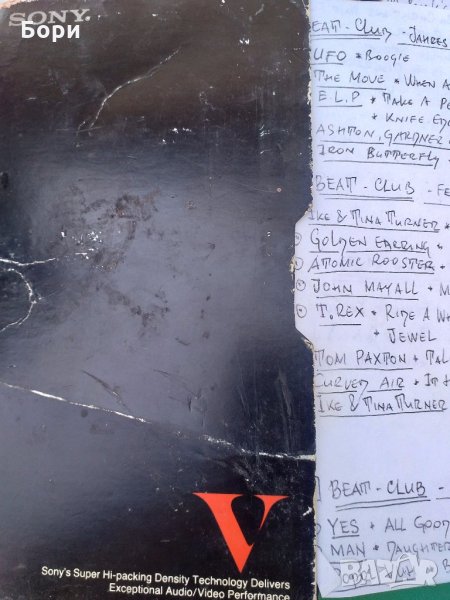 SONY
Бори
EAT - CLUB - JAHRES
UFO * BOOGIE
THE MOVE * WHEN A
E L.P * TAKE A PE
* KNIFE EDG
ASHTON, GARDNER
IRON BUTTERFLY
BEAT - CLUB - FE
IKE & TINA TURNER *
GOLDEN EARRING *
ATOMIC ROOSTER *
JOHN MAYALL * M
T. REX * RIDE A WH
* JEWEL
TOM PAXTON * TAL
CURVED AIR * IT H
IKE & TINA TURNER
BEAT - CLUB -
YES * ALL GOOD
MAN * DAUGHTER
V
Sony's Super Hi-packing Density Technology Delivers
Exceptional Audio/Video Performance